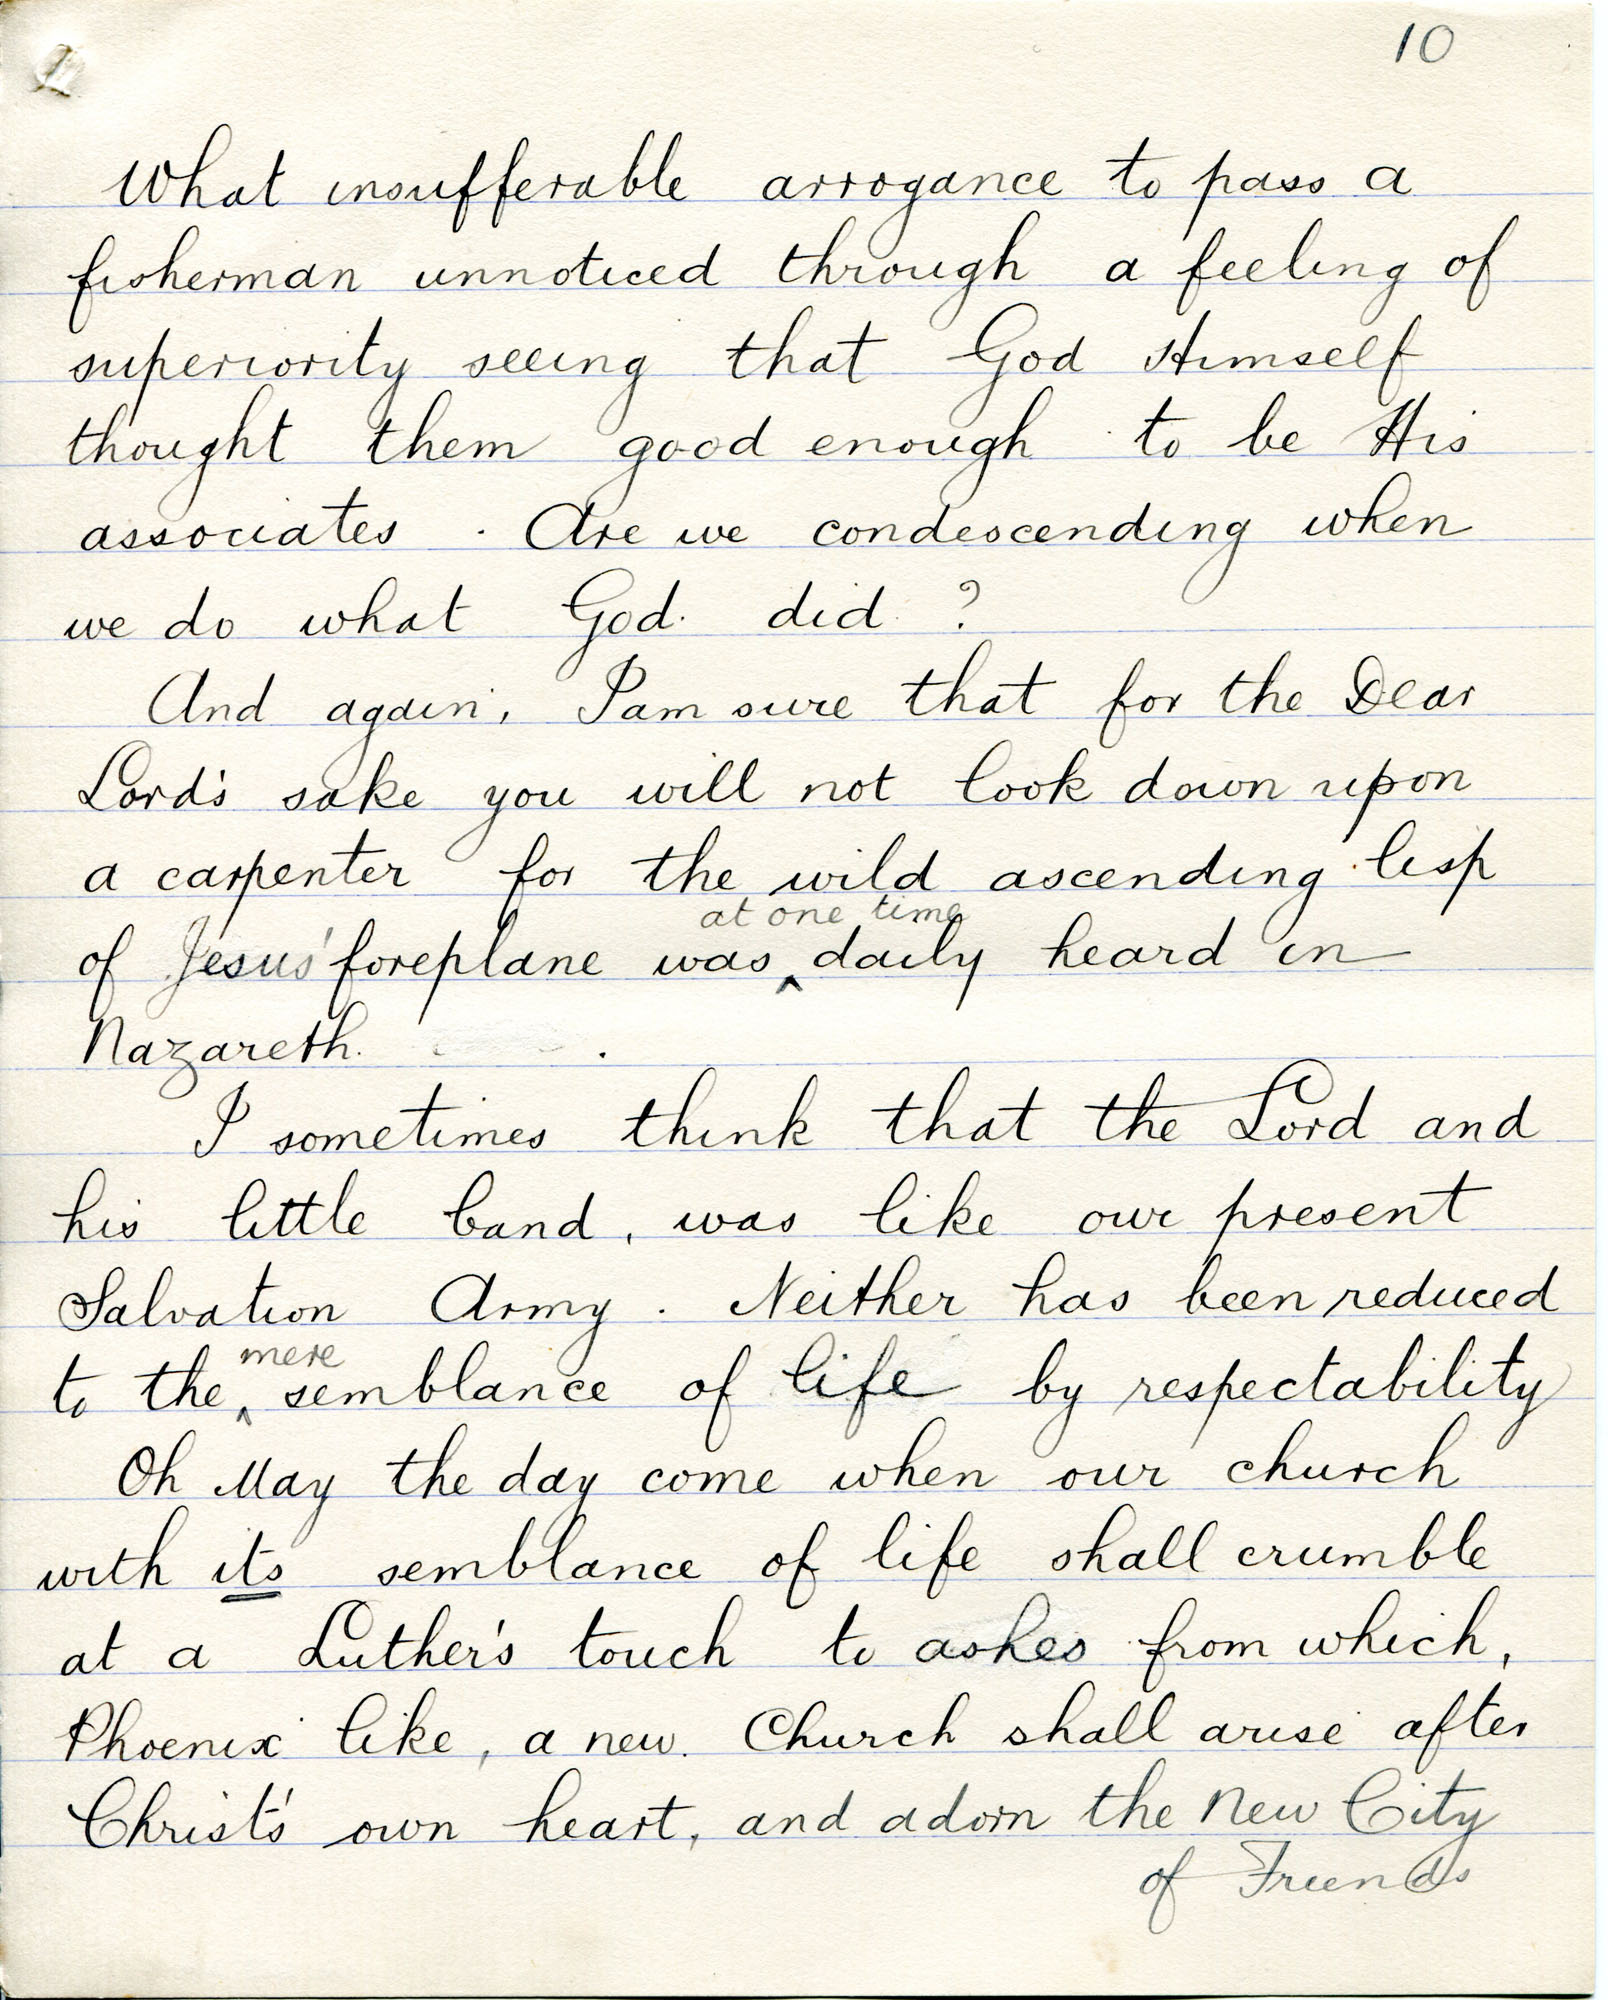 10
What insufferable arrogance to pass a
fisherman unnoticed through a feeling of
superiority seeing that God Himself
thought them good enough to be His
associates. Are we condescending when
we do what God did?
And again, I am sure that for the Dear
Lord's sake you will not look down upon
a carpenter for the wild ascending lisp
at one time
of Jesus' foreplane was ^ daily heard in
Nazareth.
I sometimes think that the Lord and
his little band, was like our present
Salvation Army. Neither has been reduced
mere
to the ^ semblance of life by respectability
Oh May the day come when our church
with its semblance of life shall crumble
at a Luther's touch to ashes from which,
Phoenix like, a new Church shall arise after
Christ's own heart, and adorn the New City
of Friends